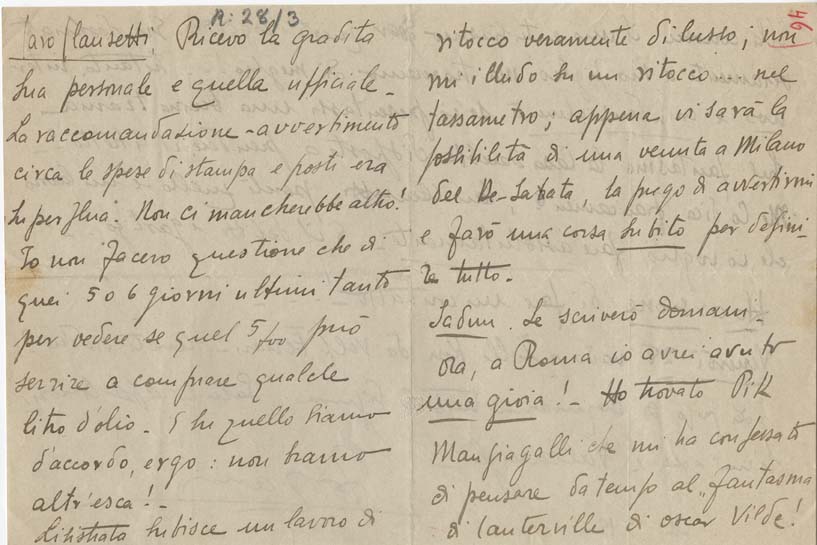 R: 28/3
46
Caro Clausetti, Ricevo la gradita
Sua personale e quella ufficiale -
La raccomandazione-avvertimento
circa le spese di stampa e posti era
superflua. Non ci mancherebbe altro!
Io non facevo questione che di
quei 5 o 6 giorni ultimi tanto
per vedere se quel 5/00 può
servire a comprare qualche
litro d'olio - Su quello siamo
d'accordo, ergo: non siamo
altr'esca! -
Lisistrata subisce un lavoro di
ritocco veramente di lusso; non
mi illudo su un ritocco... nel
tassametro; appena vi sarà la
possibilità di una venuta a Milano
del De-Sabata, la prego di avvertirmi
e farò una corsa subito per defini-
re tutto -
Sadun. Le scriverò domani -
Ora, a Roma io avrei avuto
una gioia! - Ho trovato Pik
Mangiagalli che mi ha confessato
di pensare da tempo al „fantasma
di Canterville di Oscar Vilde!